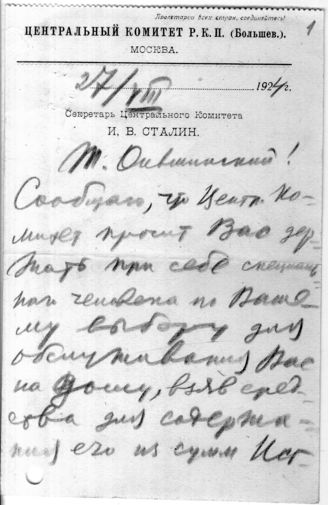 Пролетарии всех стран, соединяйтесь!
1
ЦЕНТРАЛЬНЫЙ КОМИТЕТ Р.К.П. (Большев.).
МОСКВА.
27/VIII 1924 г.
Секретарь Центрального Комитета
И. В. СТАЛИН.
Т. !
Сообщаю, что Центр. Ко-
митет просит Вас дер-
жать при себе специаль-
ного человека по Ваше-
му выбору для
обслуживания Вас
на дому, взяв сред-
ства для содержа-
ния его из сумм Ист-